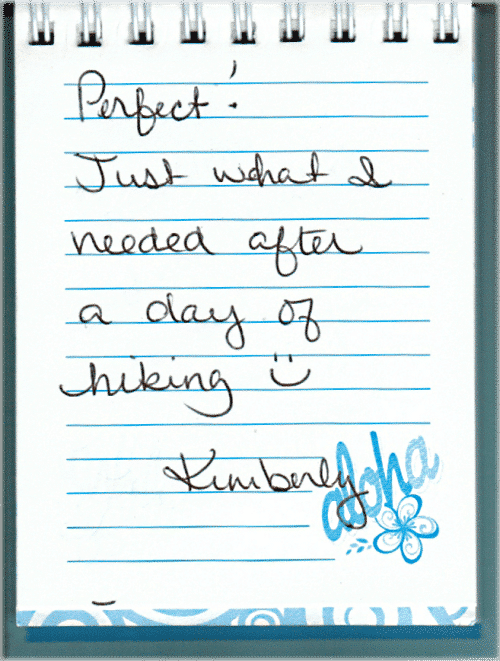 Perfect!
Just what I
needed after
a day of
hiking :)
Kimberly
aloha